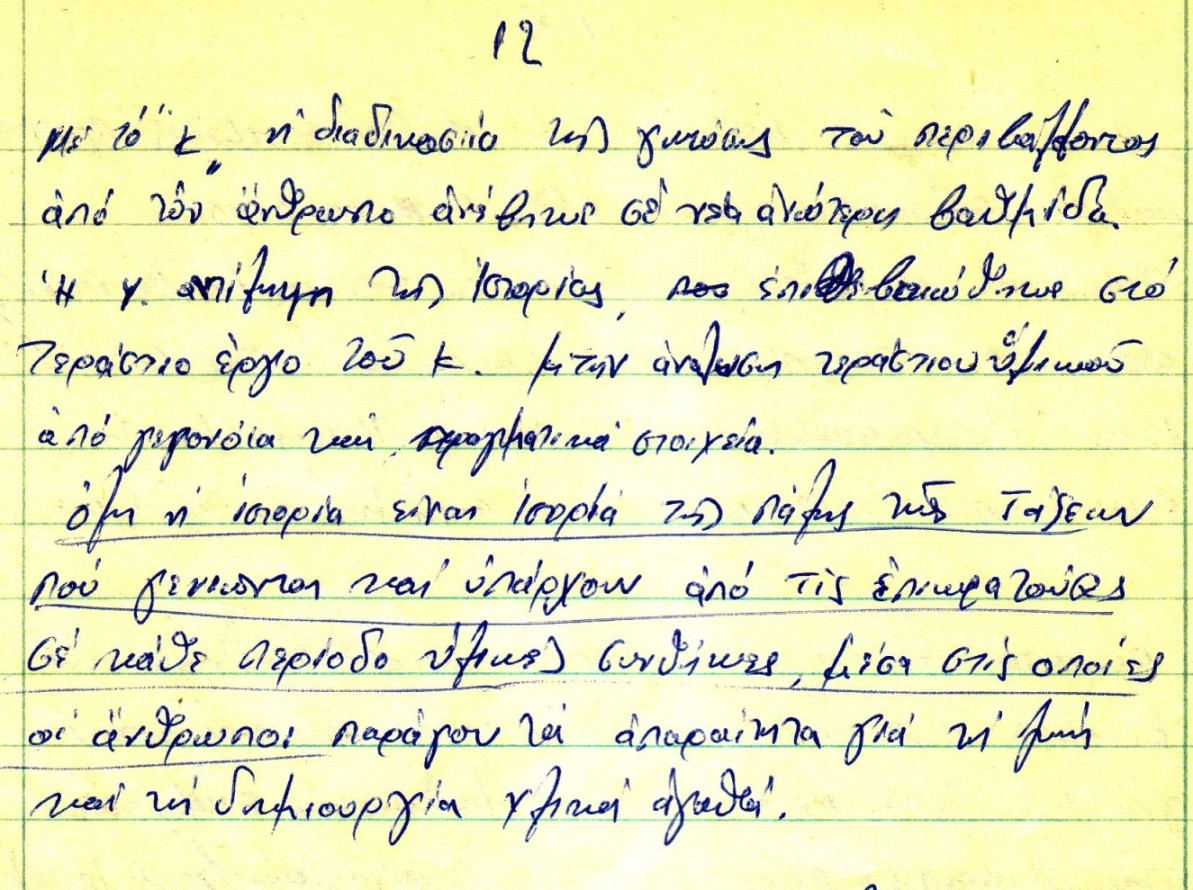 12
Μέ τό "Κ" ἡ διαδικασία τῆς γνώσης τοῦ περιβάλλοντος
ἀπό τόν ἄνθρωπο ἀνέβηκε σέ νέα ἀνώτερη βαθμίδα.
Ἡ Υ. αντίληψη τῆς ἱστορίας, που ἐπιβεβαιώθηκε στό
τεράστιο ἔργο τοῦ Κ. μέ τήν ἀνάλυση τεράστιου ὑλικοῦ
ἀπό γεγονότα καί πραγματικά στοιχεία.
Ὅλη ἡ ἱστορία εἶναι ἱστορία τῆς πάλης τῶν Τάξεων
πού γενιοῦνται καί ὑπάρχουν ἀπό τίς ἐπικρατοῦσες
σέ κάθε περίοδο ὑλικές συνθῆκες, μέσα στίς οποίες
οἱ ἄνθρωποι παράγουν τά ἀπαραίτητα γιά τή ζωή
καί τή δημιουργία ὑλικά ἀγαθά.